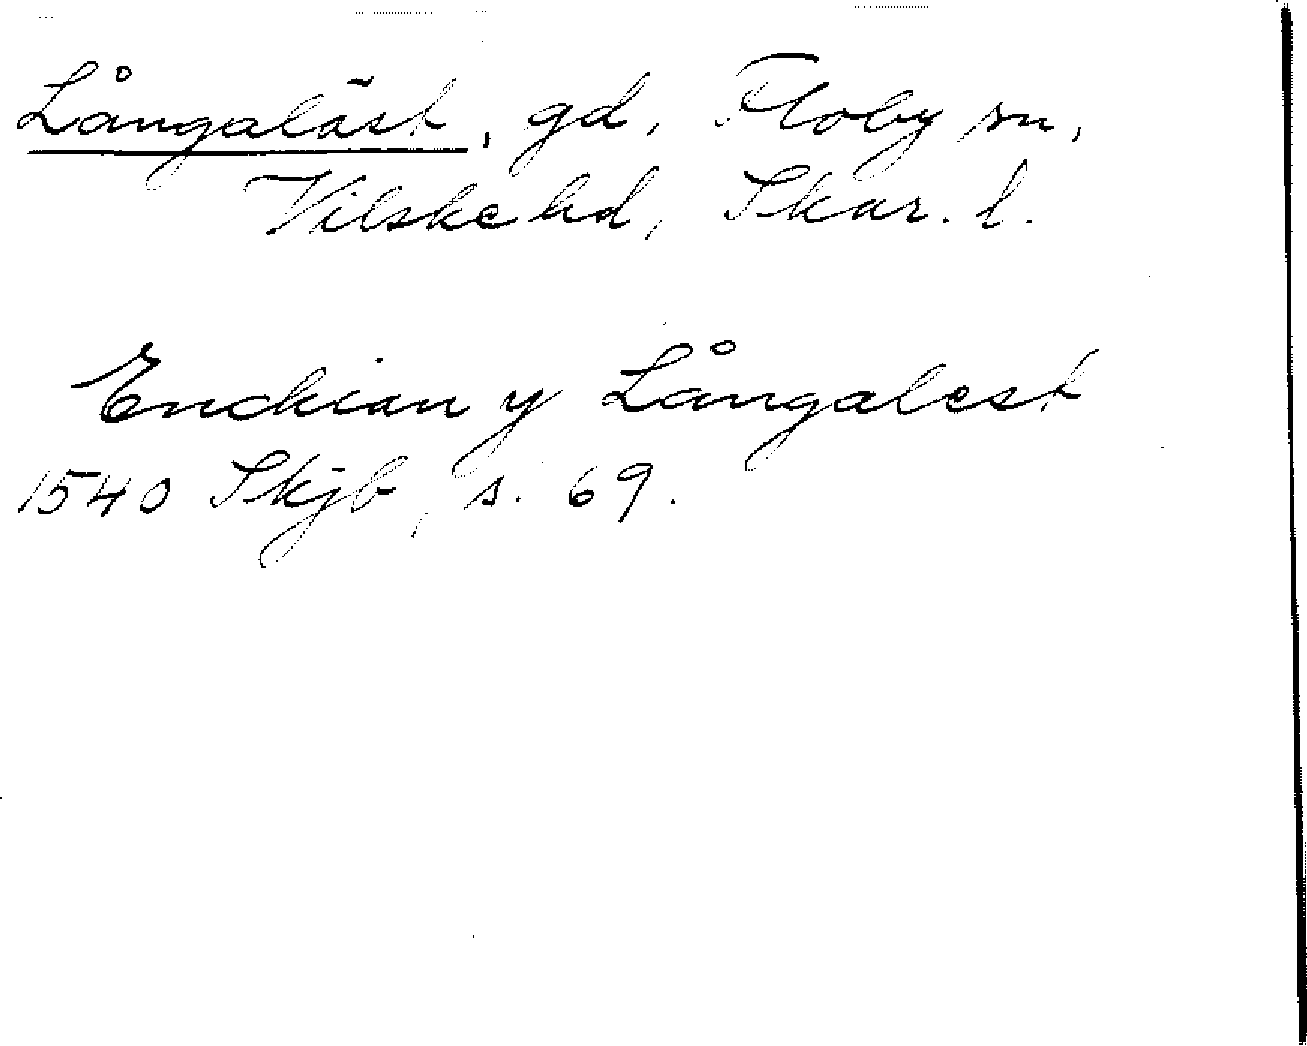 Långaläst, gd, Floby sn,
Vilske hd, Skar. l.
Enckian y Långalest
1540 Skjb, s. 69.